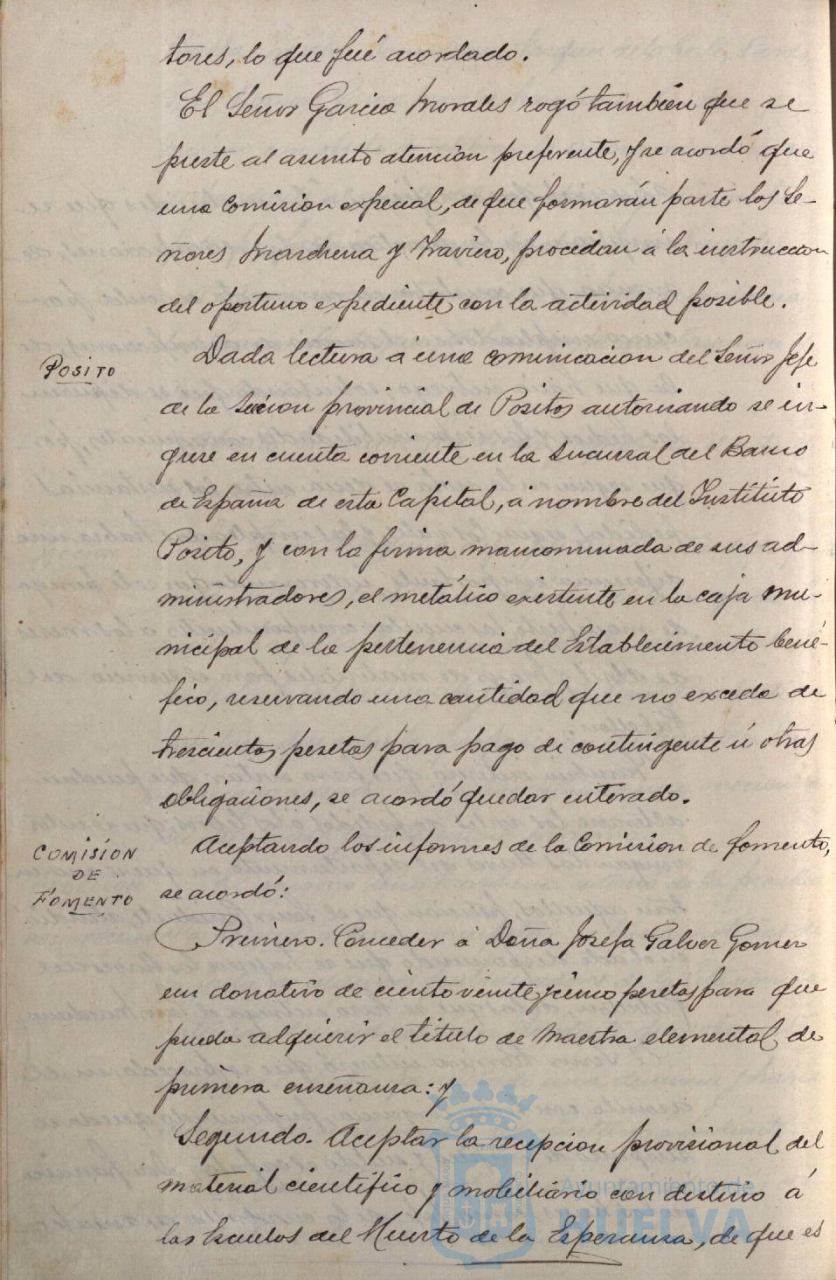 tores, lo que fué acordado.
El Señor Garcia Morales rogó también que se
preste al asunto atencion preferente, y se acordó que
una Comision especial, de que formarán parte los Se-
ñores Marchena y Traviero, procedan á la instruccion
del oportuno expediente con la actividad posible.
POSITO
Dada lectura á una comunicacion del Señor Jefe
de la Seccion provincial de Positos autorizando se in-
grese en cuenta corriente en la Sucursal del Banco
de España de esta Capital, á nombre del Instituto
Posito, y con la firma mancomunada de sus ad-
ministradores, el metálico existente en la caja mu-
nicipal de la pertenencia del Establecimiento bené-
fico, reservando una cantidad que no exceda de
trescientas pesetas para pago de contingente ú otras
obligaciones, se acordó quedar enterado.
COMISION
DE
FOMENTO
Aceptando los informes de la Comision de fomento,
se acordó:
Primero. Conceder á Doña Josefa Galvez Gomez
un donativo de ciento veinte y cinco pesetas para que
pueda adquirir el titulo de Maestra elemental de
primera enseñanza: y
Segundo. Aceptar la recepcion provisional del
material cientifico y mobiliario con destino á
las Escuelas del Huerto de la Esperanza, de que es
Ayuntamiento de
HUELVA